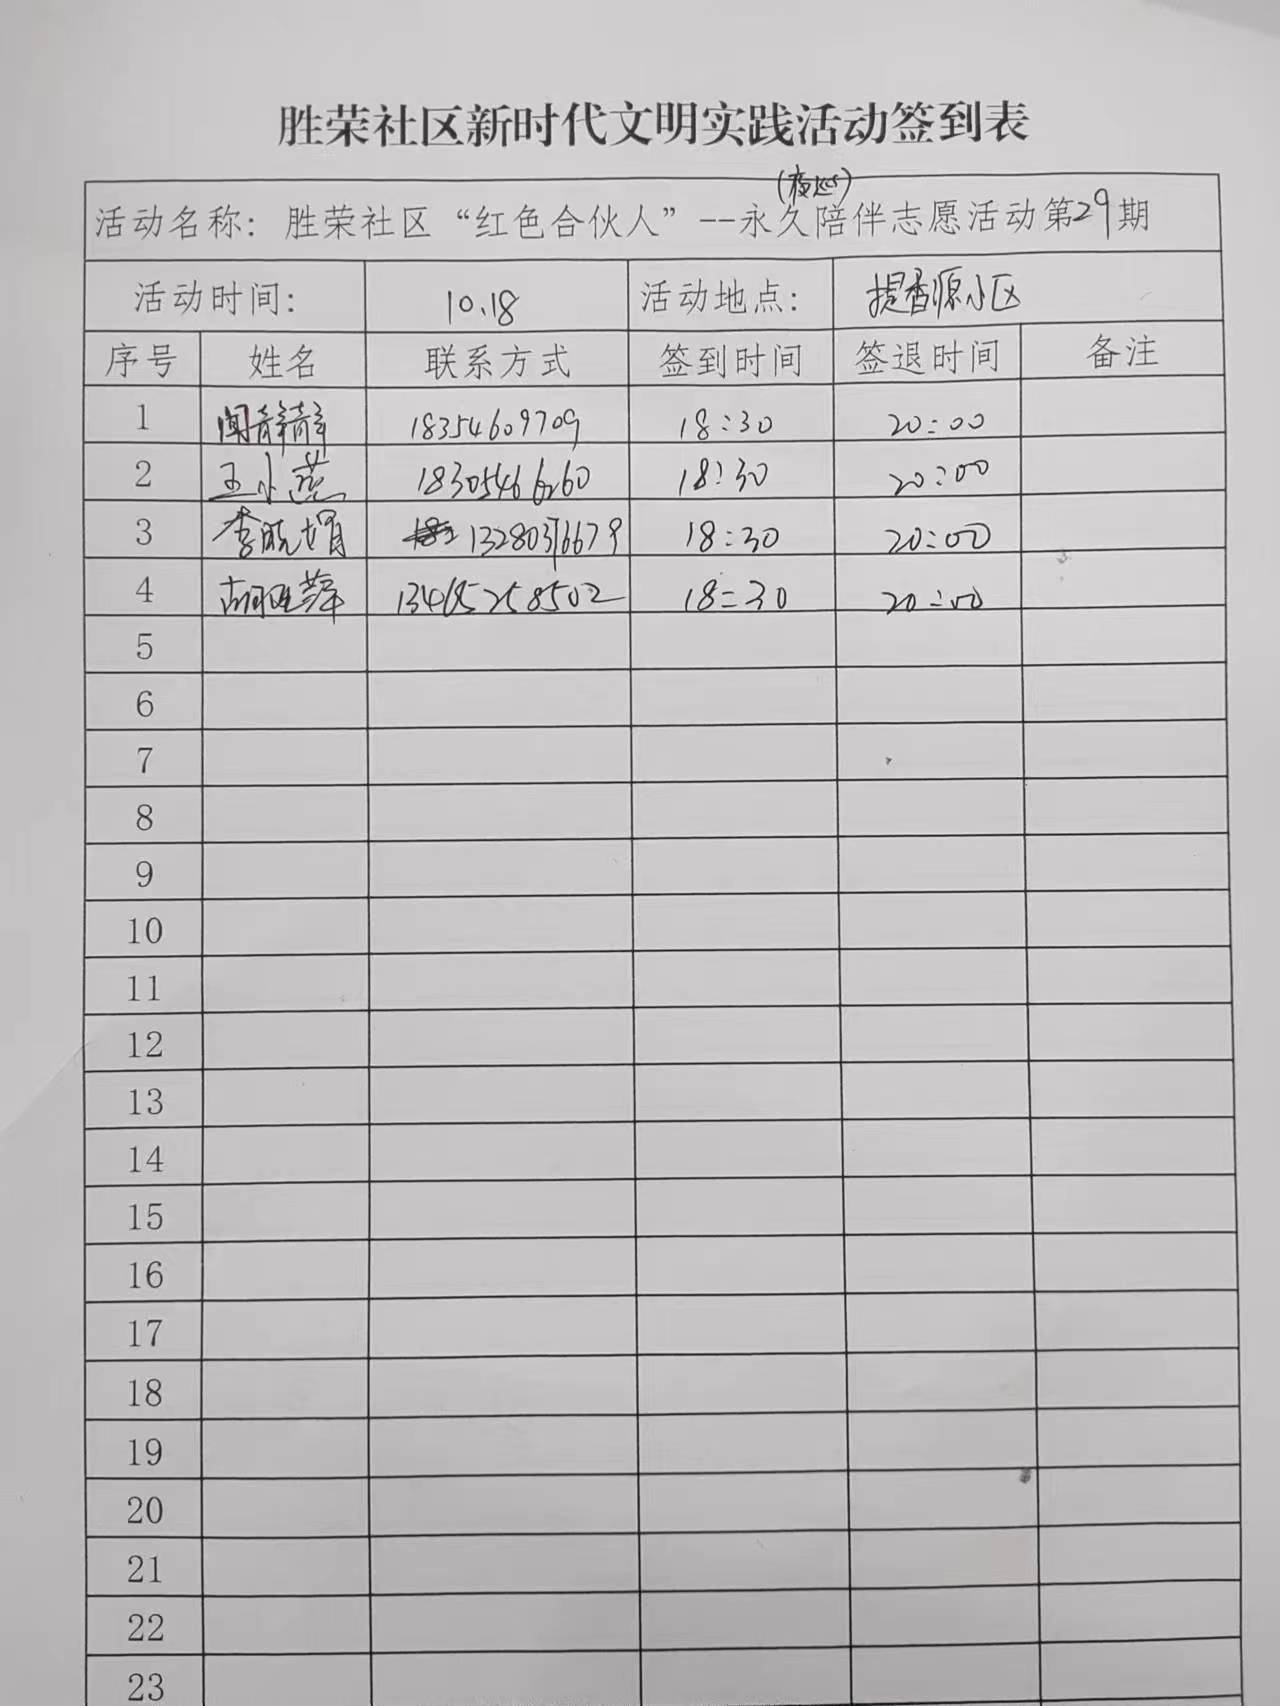 胜荣社区新时代文明实践活动签到表
(夜巡)
活动名称：胜荣社区“红色合伙人”--永久陪伴志愿活动第29期
活动时间： 10.18 活动地点： 提香源小区
序号 姓名 联系方式 签到时间 签退时间 备注
1 闻静静 18354609709 18:30 20:00
2 王小燕 18305466260 18:30 20:00
3 李晓娟 18:30 20:00
4 13465258502 18:30 20:00
5
6
7
8
9
10
11
12
13
14
15
16
17
18
19
20
21
22
23